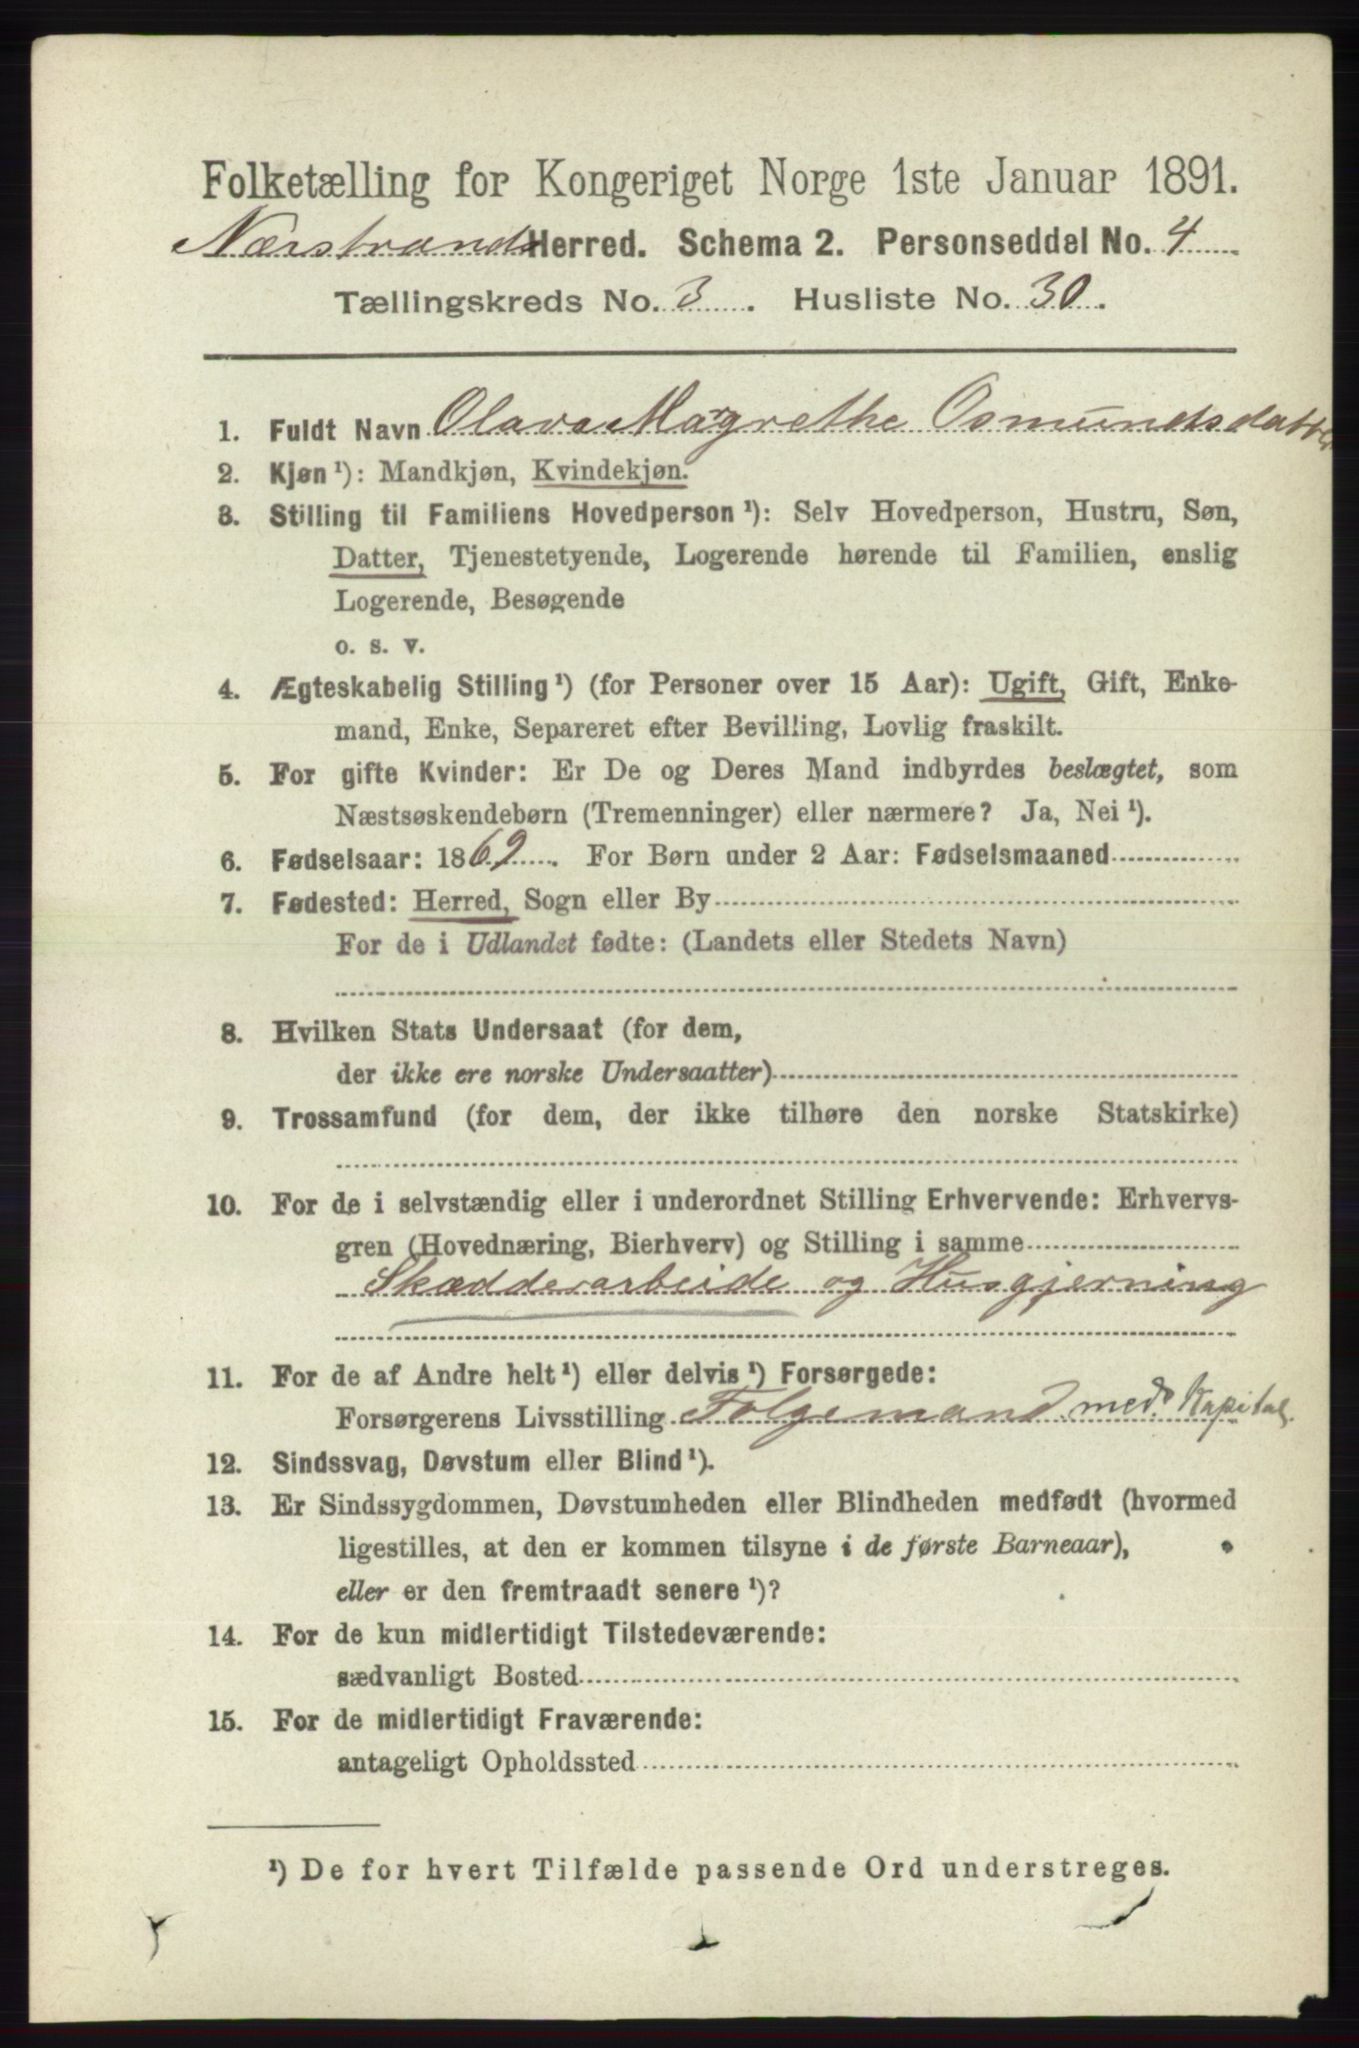 Folketælling for Kongeriget Norge 1ste Januar 1891.
Nærstrands Herred. Schema 2. Personseddel No. 4
Tællingskreds No. 3. Husliste No. 30.
1. Fuldt Navn Olava Margrethe Osmundsdatter
2. Kjøn¹): Mandkjøn, Kvindekjøn.
3. Stilling til Familiens Hovedperson¹): Selv Hovedperson, Hustru, Søn,
Datter, Tjenestetyende, Logerende hørende til Familien, enslig
Logerende, Besøgende
o. s. v.
4. Ægteskabelig Stilling¹) (for Personer over 15 Aar): Ugift, Gift, Enke-
mand, Enke, Separeret efter Bevilling, Lovlig fraskilt.
5. For gifte Kvinder: Er De og Deres Mand indbyrdes beslægtet, som
Næstsøskendebørn (Tremenninger) eller nærmere? Ja, Nei¹).
6. Fødselsaar: 1869. For Børn under 2 Aar: Fødselsmaaned
7. Fødested: Herred, Sogn eller By
For de i Udlandet fødte: (Landets eller Stedets Navn)
8. Hvilken Stats Undersaat (for dem,
der ikke ere norske Undersaatter)
9. Trossamfund (for dem, der ikke tilhøre den norske Statskirke)
10. For de i selvstændig eller i underordnet Stilling Erhvervende: Erhvervs-
gren (Hovednæring, Bierhverv) og Stilling i samme
Skædderarbeide og Husgjerning
11. For de af Andre helt¹) eller delvis¹) Forsørgede:
Forsørgerens Livsstilling Folgemand med Kapital.
12. Sindssvag, Døvstum eller Blind¹).
13. Er Sindssygdommen, Døvstumheden eller Blindheden medfødt (hvormed
ligestilles, at den er kommen tilsyne i de første Barneaar),
eller er den fremtraadt senere¹)?
14. For de kun midlertidigt Tilstedeværende:
sædvanligt Bosted
15. For de midlertidigt Fraværende:
antageligt Opholdssted
¹) De for hvert Tilfælde passende Ord understreges.